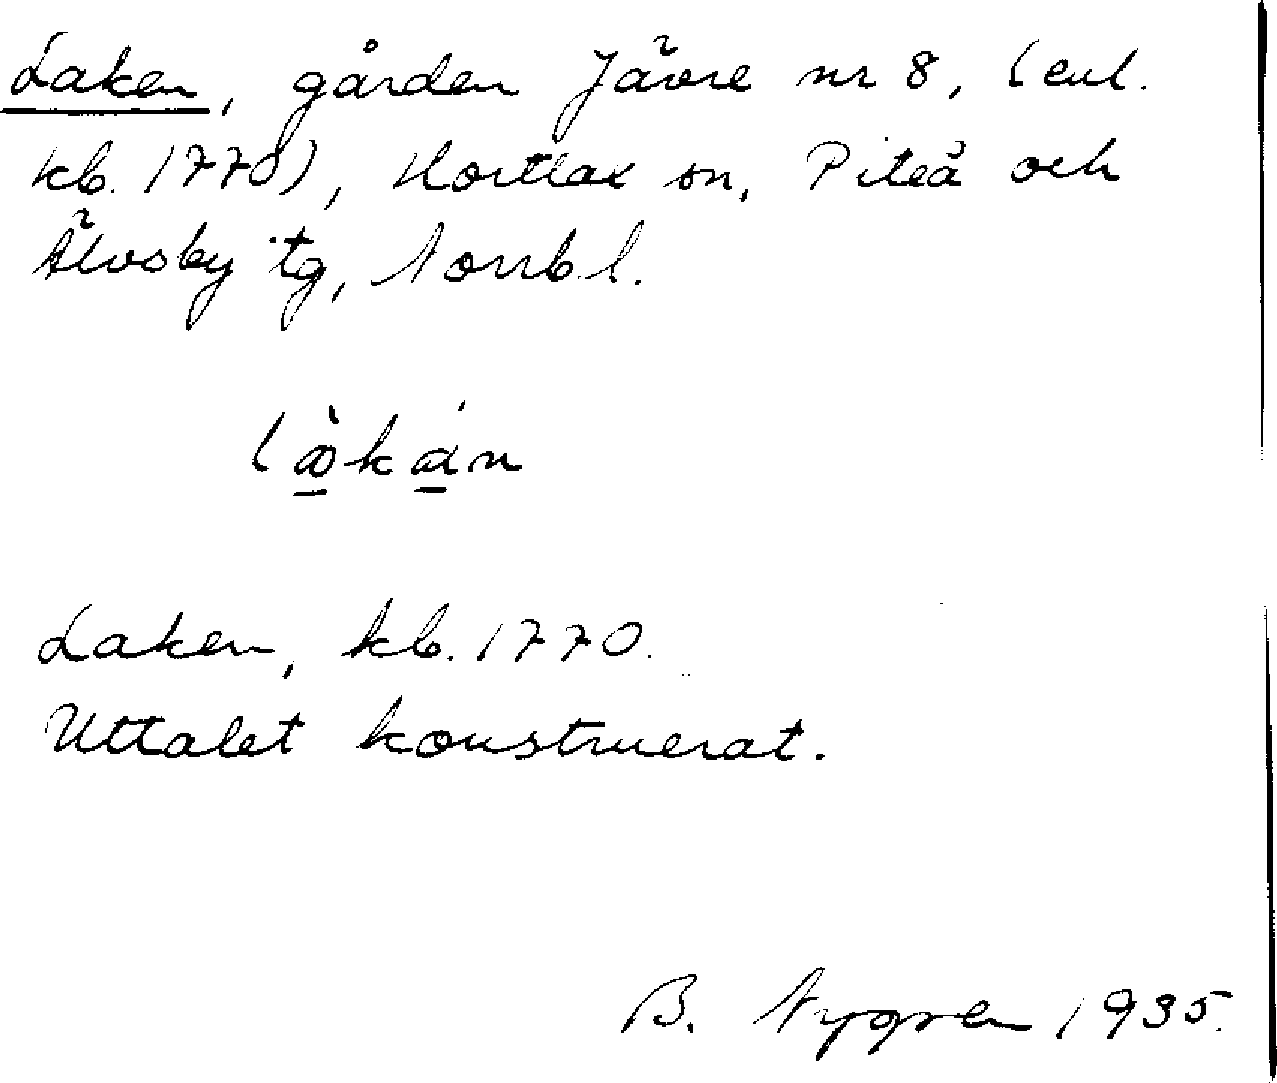 Laken, gården Jävre nr 8, (enl.
kb. 1770), Hortlax sn, Piteå och
Älvsby tg, Norrb. l.
Laken, kb. 1770.
Uttalet konstruerat.
B. Nygren 1935.